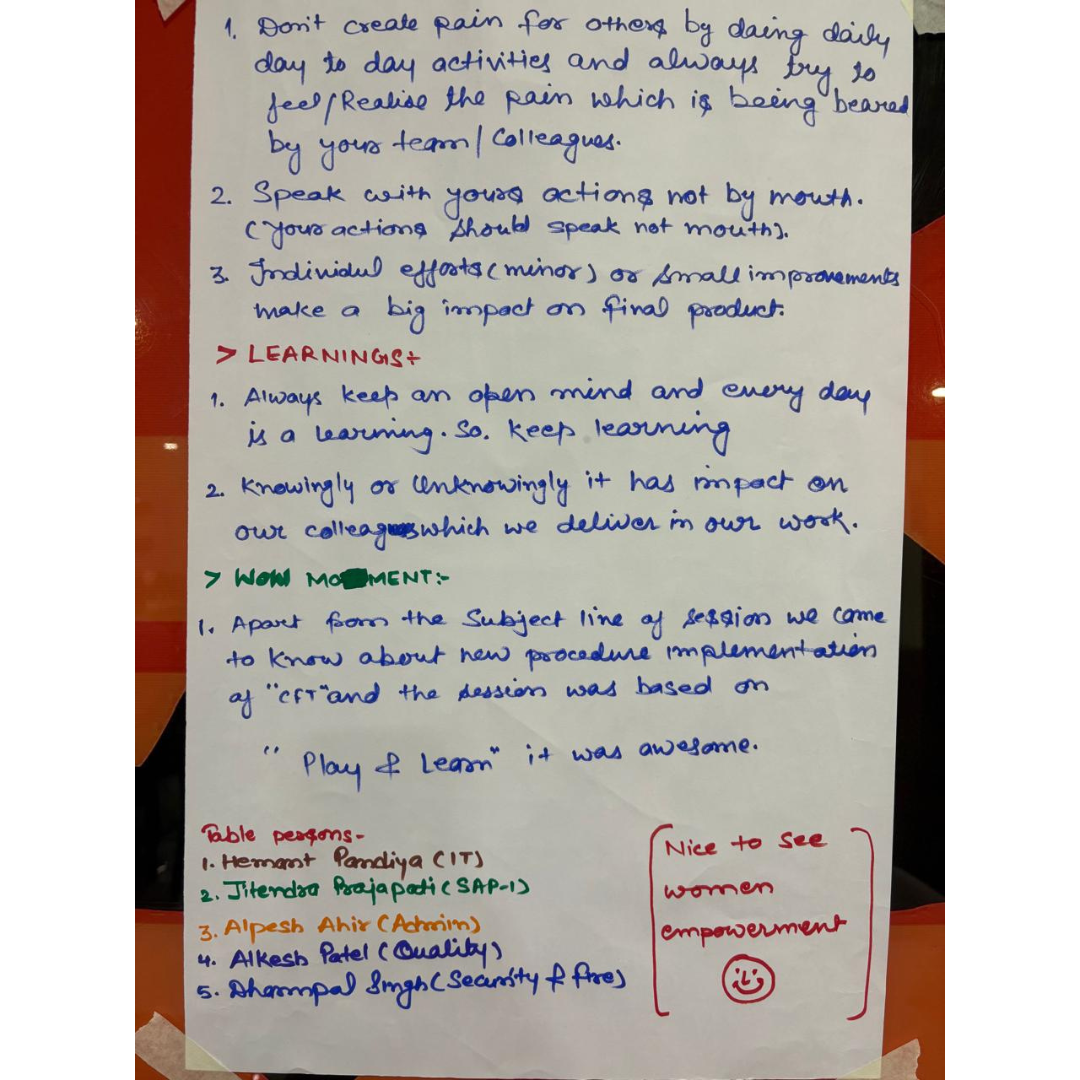 1. Don't create pain for others by daing daily
day to day activities and always try to
feel/Realise the pain which is being beared
by your team/Colleagues.
2. Speak with yours actions not by mouth.
(your actions should speak not mouth).
3. Individul efforts(minor) or small improvements
make a big impact on final product.
> LEARNINGS:-
1. Always keep an open mind and every day
is a learning. So. keep learning
2. Knowingly or Unknowingly it has impact on
our colleagues which we deliver in our work.
> WOW MOMENT:-
1. Apart from the Subject line of session we come
to know about new procedure implementation
of "CFT" and the session was based on
"Play & Learn" it was awesome.
Table persons-
1. Hemant Pandiya (IT)
2. Jitendra Prajapati (SAP-1)
3. Alpesh Ahir (Admin)
4. Alkesh Patel (Quality)
5. Dharmpal Singh (Security & fire)
Nice to see
women
empowerment